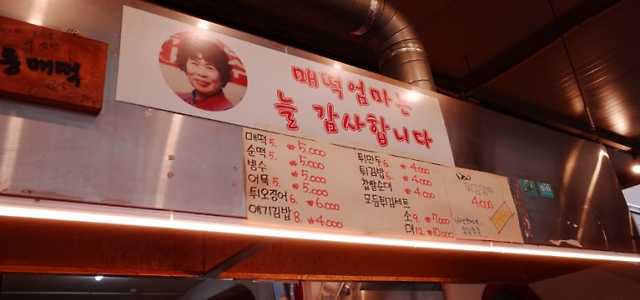 통매떡
매떡엄마는
늘 감사합니다
매떡 5. ₩5,000
순떡 5. ₩5,000
빙수 ₩5,000
어묵 5. ₩5,000
튀오징어 6. ₩6,000
애기김밥 8. ₩4,000
튀만두 6. ₩4,000
튀김밥 6. ₩4,000
찹쌀순대 ₩4,000
모듬튀김세트
소 9. ₩7,000
대 12. ₩10,000
New
4,000